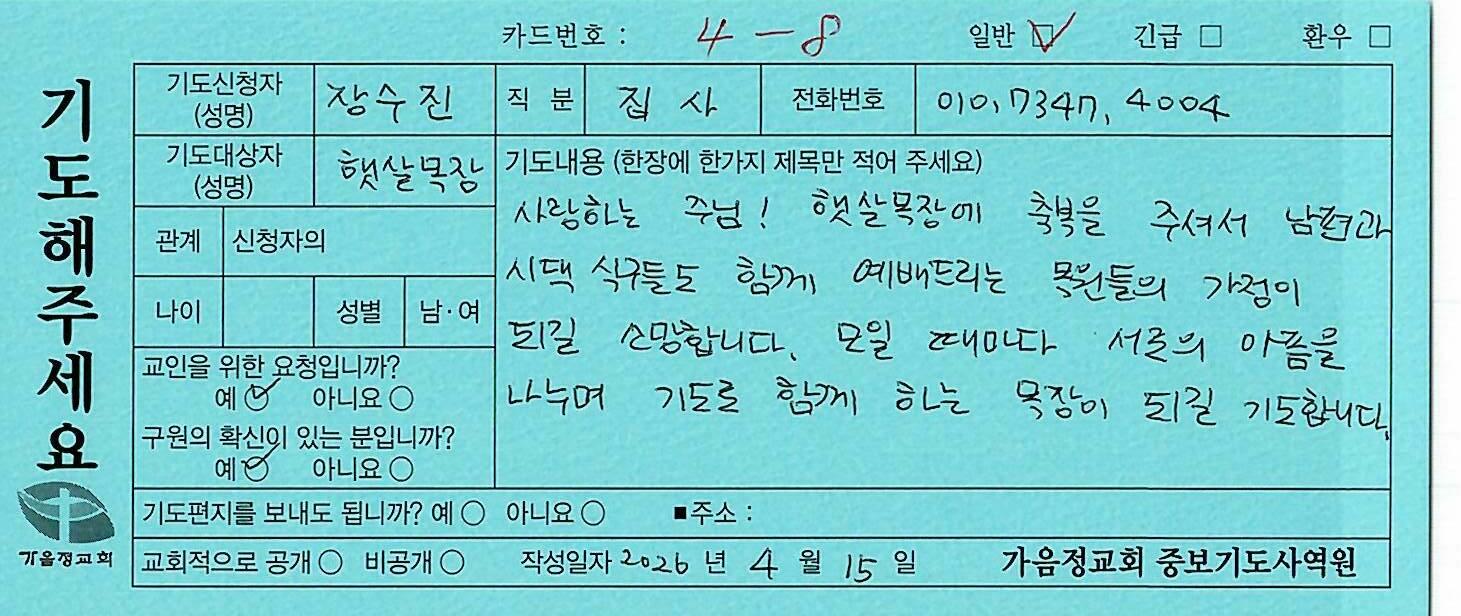 카드번호 : 4-8 일반 ☑ 긴급 □ 환우 □
기도해주세요
기도신청자 (성명) 장수진 직 분 집사 전화번호 010, 7347, 4004
기도대상자 (성명) 햇살목장
관계 신청자의
나이 성별 남·여
교인을 위한 요청입니까?
예 ☑ 아니요 ○
구원의 확신이 있는 분입니까?
예 ☑ 아니요 ○
기도내용 (한장에 한가지 제목만 적어 주세요)
사랑하는 주님! 햇살목장에 축복을 주셔서 남편과
시댁 식구들도 함께 예배드리는 목원들의 가정이
되길 소망합니다. 모일 때마다 서로의 아픔을
나누며 기도로 함께 하는 목장이 되길 기도합니다.
기도편지를 보내도 됩니까? 예 ○ 아니요 ○ ■주소 :
교회적으로 공개 ○ 비공개 ○ 작성일자 2026 년 4 월 15 일 가음정교회 중보기도사역원
가음정교회